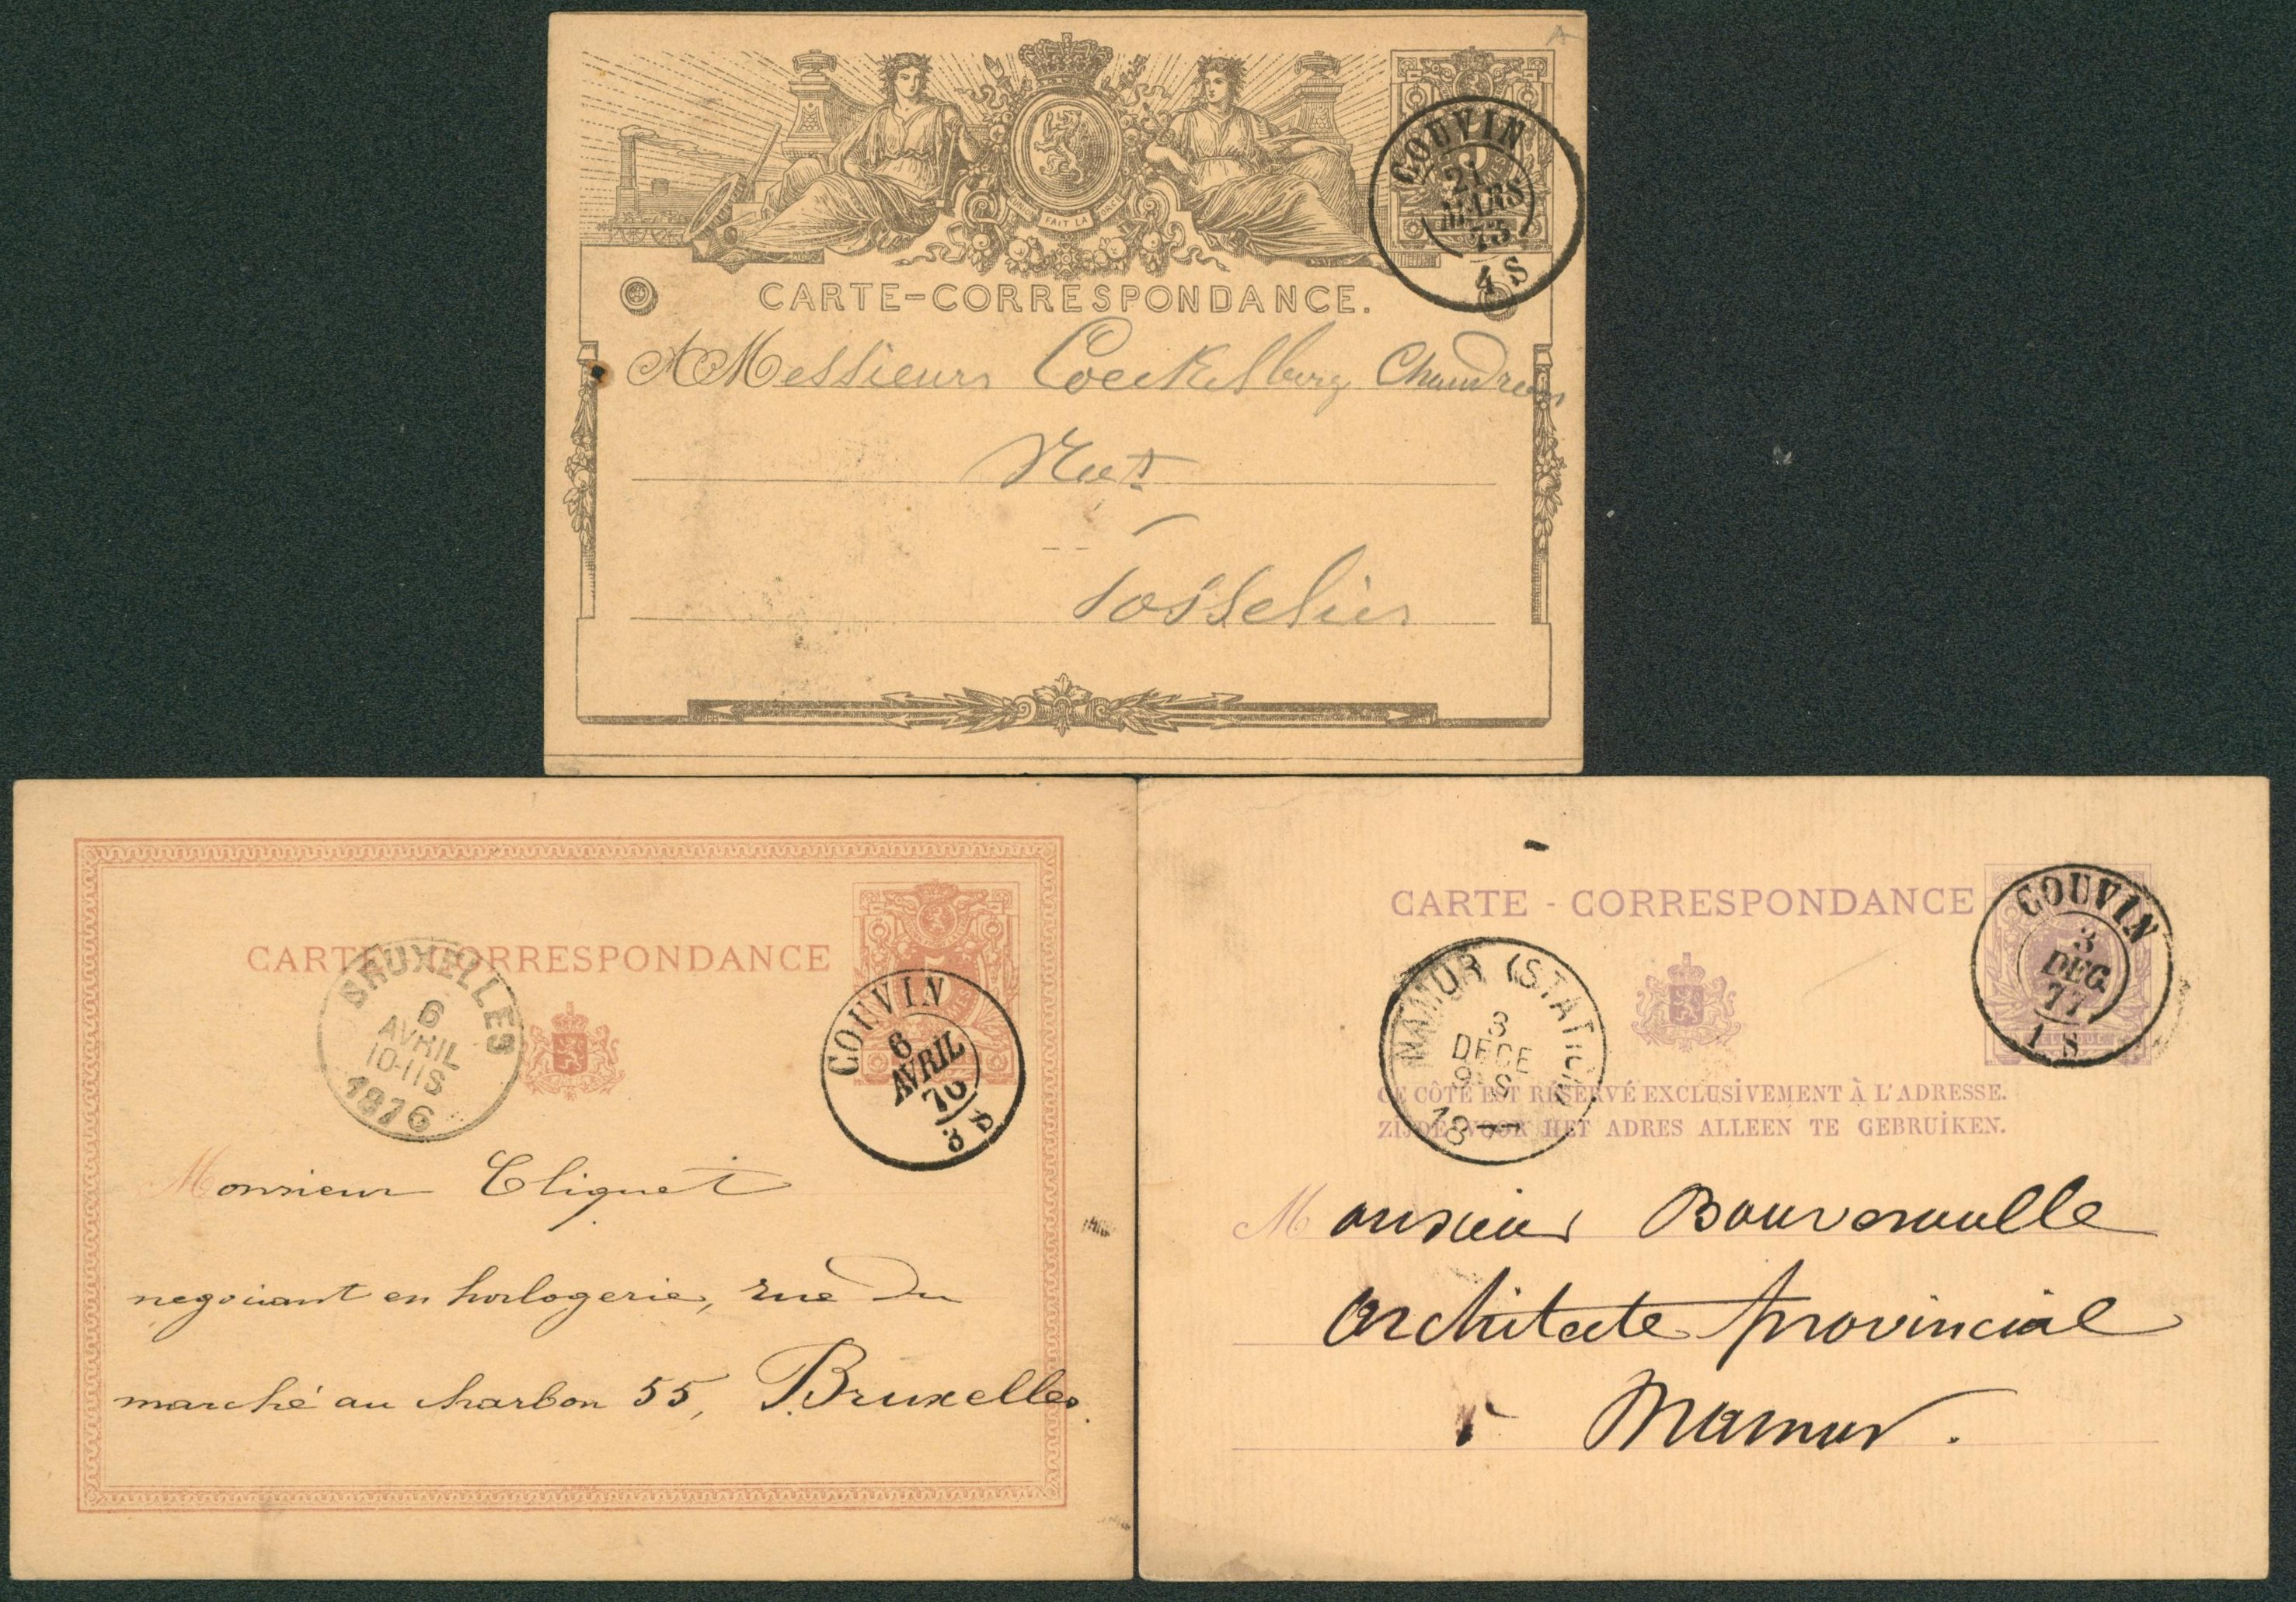 COUVIN
21
MARS
75
4 S
FAIT LA
CARTE-CORRESPONDANCE.
A Messieurs Coeckelberg
CARTE-CORRESPONDANCE
BRUXELLES
6
AVRIL
10-11 S
1876
COUVIN
6
AVRIL
76
3 S
Monsieur Cliquet
negociant en horlogerie, rue du
marché au charbon 55, Bruxelles.
CARTE - CORRESPONDANCE
COUVIN
3
DEC
77
1 S
NAMUR (STATION)
3
DECE
9 S
18
CE CÔTÉ EST RÉSERVÉ EXCLUSIVEMENT À L'ADRESSE.
ZIJDE VOOR HET ADRES ALLEEN TE GEBRUIKEN.
Monsieur
architecte provincial
à Namur.